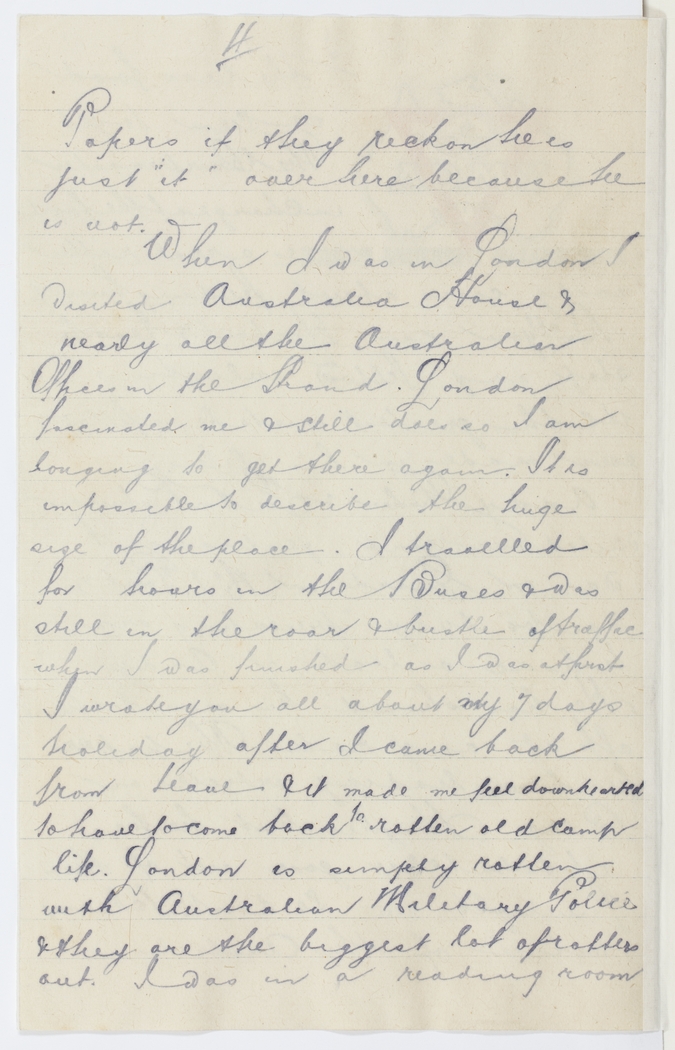 4
Papers if they reckon he is
just "it" over here because he
is not.
When I was in London I
visited Australia House &
nearly all the Australian
Offices in the Strand. London
fascinated me & still does so I am
longing to get there again. It is
impossible to describe the huge
size of the place. I travelled
for hours in the Buses & was
still in the roar & bustle of traffic
when I was finished as I was at first
I wrote you all about my 7 days
holiday after I came back
from leave & it made me feel downhearted
to have to come back to rotten old camp
life. London is simply rotten
with Australian Military Police
& they are the biggest lot of rotters
out. I was in a reading room